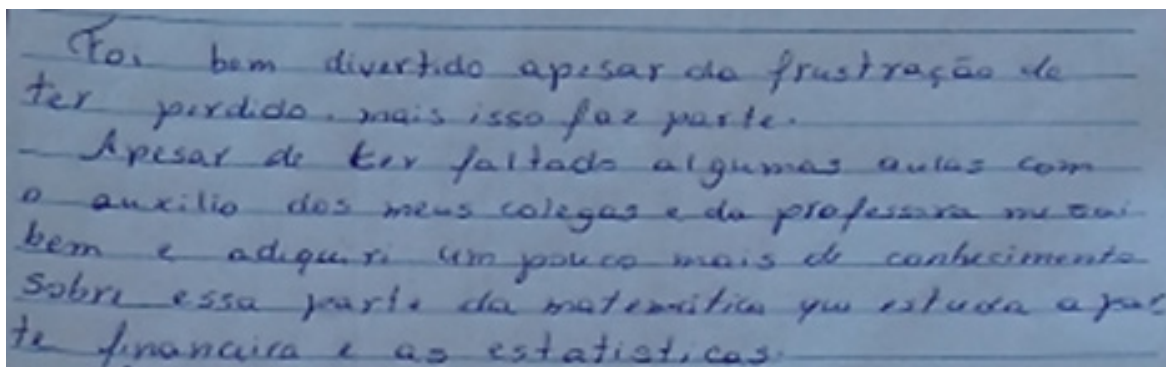 Foi bem divertido apesar da frustração de
ter perdido, mais isso faz parte.
Apesar de ter faltado algumas aulas com
o auxilio dos meus colegas e da professora me sai
bem e adiquiri um pouco mais de conhecimento
sobre essa parte da matemática que estuda a par
te financeira e as estatisticas.